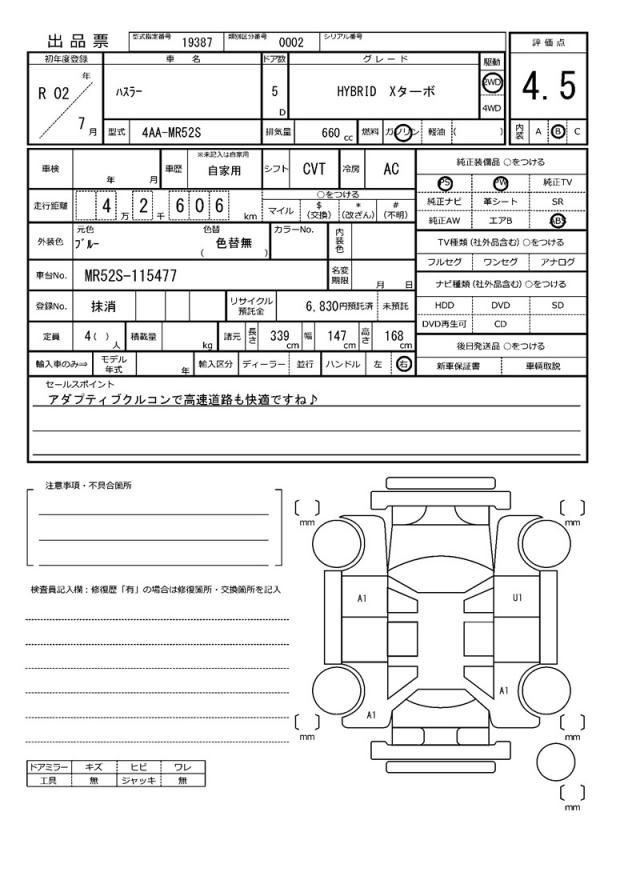 出品票 型式指定番号 19387 類別区分番号 0002 シリアル番号
評価点
4.5
内装 A B C
初年度登録 車名 ドア数 グレード 駆動
R 02 年 7 月
ハスラー 5 D HYBRID Xターボ 2WD 4WD
型式 4AA-MR52S 排気量 660 cc 燃料 ガソリン 軽油 ( )
車検 年 月 車歴 ※未記入は自家用 自家用 シフト CVT 冷房 AC
走行距離 4 万 2 千 6 0 6 km
○をつける
マイル $(交換) *(改ざん) #(不明)
外装色 元色 ブルー 色替 ( 色替無 ) カラーNo. 内装色
車台No. MR52S-115477 名変期限 月 日
登録No. 抹消 リサイクル預託金 6,830円預託済 未預託
定員 4( )人 積載量 kg 諸元 長さ 339 cm 幅 147 cm 高さ 168 cm
輸入車のみ⇒ モデル年式 年 輸入区分 ディーラー 並行 ハンドル 左 右
純正装備品 ○をつける
PS PW 純正TV
純正ナビ 革シート SR
純正AW エアB ABS
TV種類(社外品含む)○をつける
フルセグ ワンセグ アナログ
ナビ種類(社外品含む)○をつける
HDD DVD SD
DVD再生可 CD
後日発送品 ○をつける
新車保証書 車輌取説
セールスポイント
アダプティブクルコンで高速道路も快適ですね♪
注意事項・不具合箇所
検査員記入欄：修復歴「有」の場合は修復箇所・交換箇所を記入
ドアミラー キズ ヒビ ワレ
工具 無 ジャッキ 無
[ ] mm [ ] mm
A1 U1
A1 A1
[ ] mm [ ] mm
[ ] mm